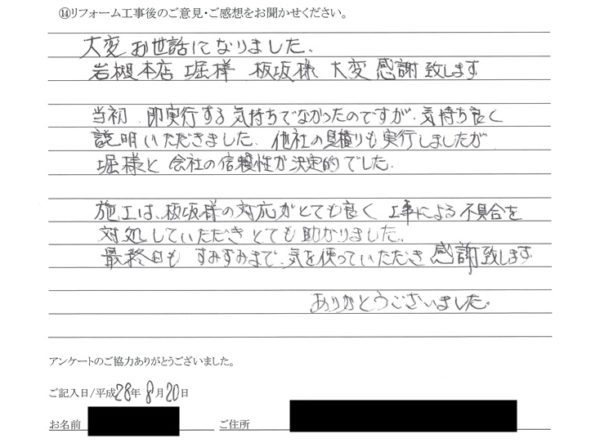 ⑭リフォーム工事後のご意見・ご感想をお聞かせください。
大変お世話になりました.
岩槻本店 堀様 板坂様 大変感謝致します
当初 即実行する気持ちでなかったのですが、気持ち良く
説明いただきました. 他社の見積りも実行しましたが
堀様と会社の信頼性が決定的でした.
施工は、板坂様の対応がとても良く 工事による不具合を
対処していただきとても助かりました.
最終日も すみずみまで、気を使っていただき 感謝致します
ありがとうございました.
アンケートのご協力ありがとうございました。
ご記入日/平成28年8月20日
お名前 ご住所